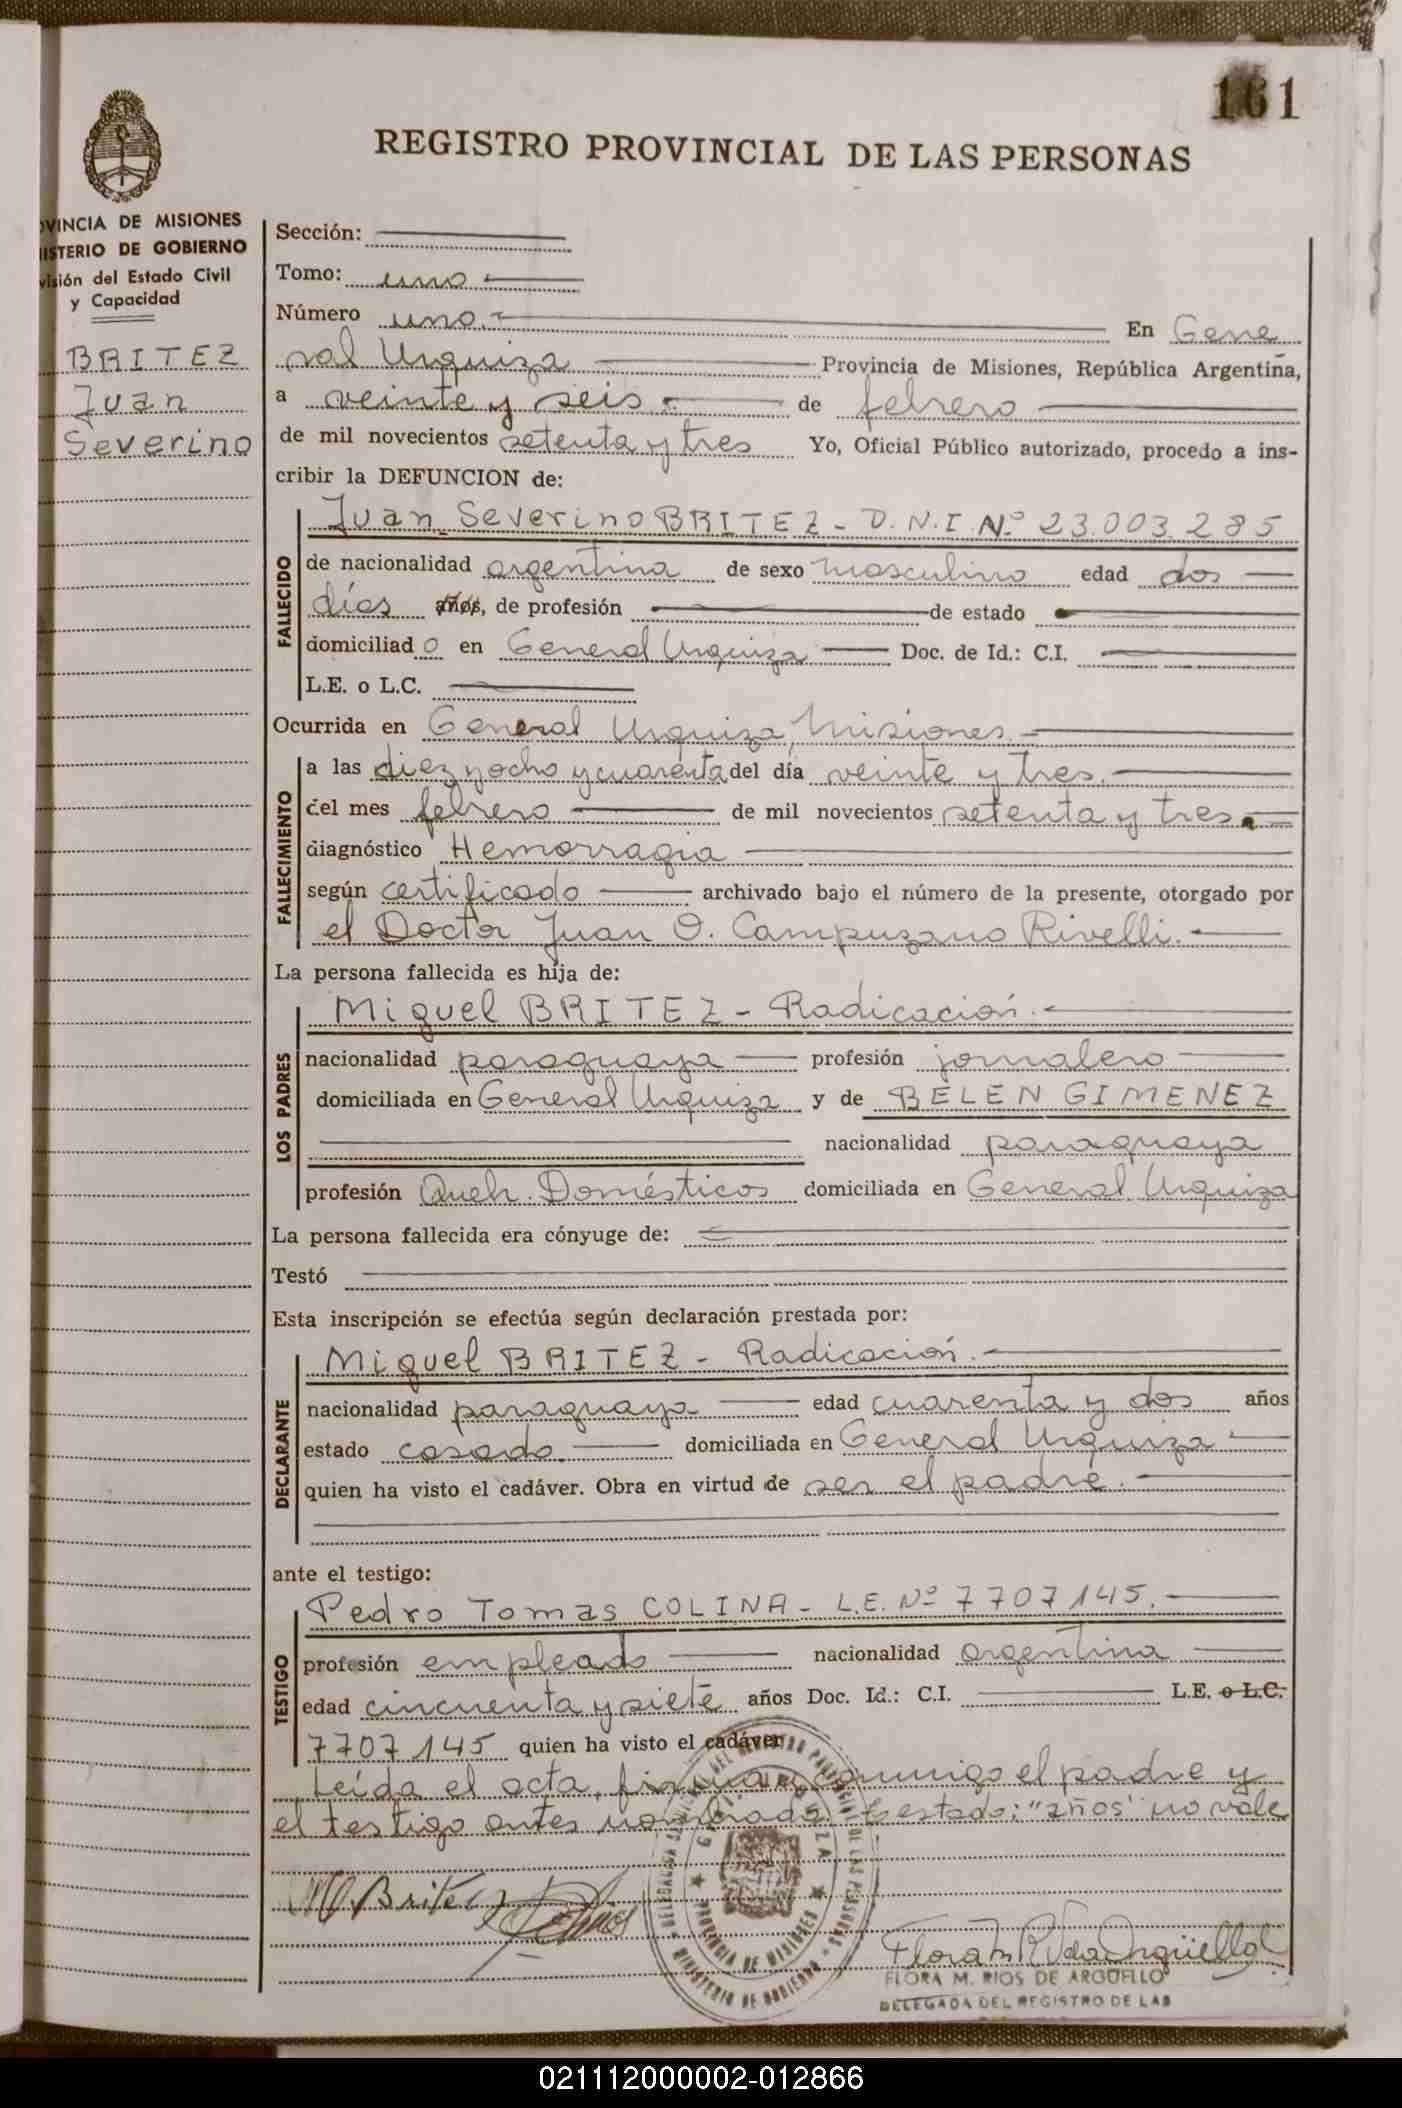 161
REGISTRO PROVINCIAL DE LAS PERSONAS
VINCIA DE MISIONES
ISTERIO DE GOBIERNO
isión del Estado Civil
y Capacidad
BRITEZ
Juan
Severino
Sección:
Tomo: uno
Número uno. En Gene
ral Urquiza Provincia de Misiones, República Argentina,
a veinte y seis de febrero
de mil novecientos setenta y tres Yo, Oficial Público autorizado, procedo a ins-
cribir la DEFUNCION de:
Juan Severino BRITEZ - D.N.I. Nº 23.003.285
FALLECIDO
de nacionalidad argentina de sexo masculino edad dos
días años, de profesión de estado
domiciliado en General Urquiza Doc. de Id.: C.I.
L.E. o L.C.
Ocurrida en General Urquiza, Misiones.
FALLECIMIENTO
a las diez y ocho y cuarenta del día veinte y tres.
del mes febrero de mil novecientos setenta y tres.
diagnóstico Hemorragia
según certificado archivado bajo el número de la presente, otorgado por
el Doctor Juan O. Campuzano Rivelli.
La persona fallecida es hija de:
LOS PADRES
Miguel BRITEZ - Radicación.
nacionalidad paraguaya profesión jornalero
domiciliada en General Urquiza y de BELEN GIMENEZ
nacionalidad paraguaya
profesión Queh. Domésticos domiciliada en General Urquiza
La persona fallecida era cónyuge de:
Testó
Esta inscripción se efectúa según declaración prestada por:
DECLARANTE
Miguel BRITEZ - Radicación.
nacionalidad paraguaya edad cuarenta y dos años
estado casado. domiciliada en General Urquiza
quien ha visto el cadáver. Obra en virtud de ser el padre.
ante el testigo:
TESTIGO
Pedro Tomas COLINA - L.E. Nº 7707145.
profesión empleado nacionalidad argentina
edad cincuenta y siete años Doc. Id.: C.I. L.E. o L.C.
7707145 quien ha visto el cadáver
Leída el acta, firman conmigo el padre y
el testigo antes nombrado. Testado: "años" no vale
M Britez
Flora M R Vda Argüello
FLORA M. RIOS DE ARGÜELLO
DELEGADA DEL REGISTRO DE LAS
PROVINCIA DE MISIONES
MINISTERIO DE GOBIERNO
021112000002-012866